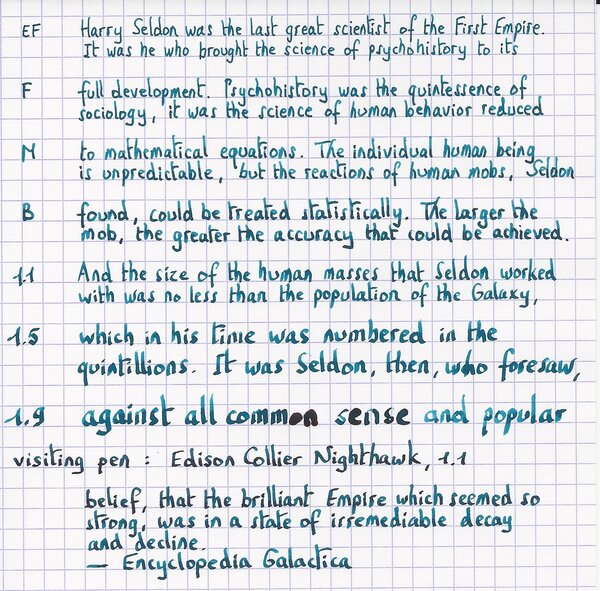 EF Harry Seldon was the last great scientist of the First Empire.
It was he who brought the science of psychohistory to its
F full development. Psychohistory was the quintessence of
sociology, it was the science of human behavior reduced
M to mathematical equations. The individual human being
is unpredictable, but the reactions of human mobs, Seldon
B found, could be treated statistically. The larger the
mob, the greater the accuracy that could be achieved.
1.1 And the size of the human masses that Seldon worked
with was no less than the population of the Galaxy,
1.5 which in his time was numbered in the
quintillions. It was Seldon, then, who foresaw,
1.9 against all common sense and popular
visiting pen : Edison Collier Nighthawk, 1.1
belief, that the brilliant Empire which seemed so
strong, was in a state of irremediable decay
and decline.
— Encyclopedia Galactica